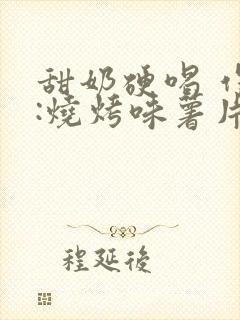 甜奶硬唱
:燒烤味薯片
程延後